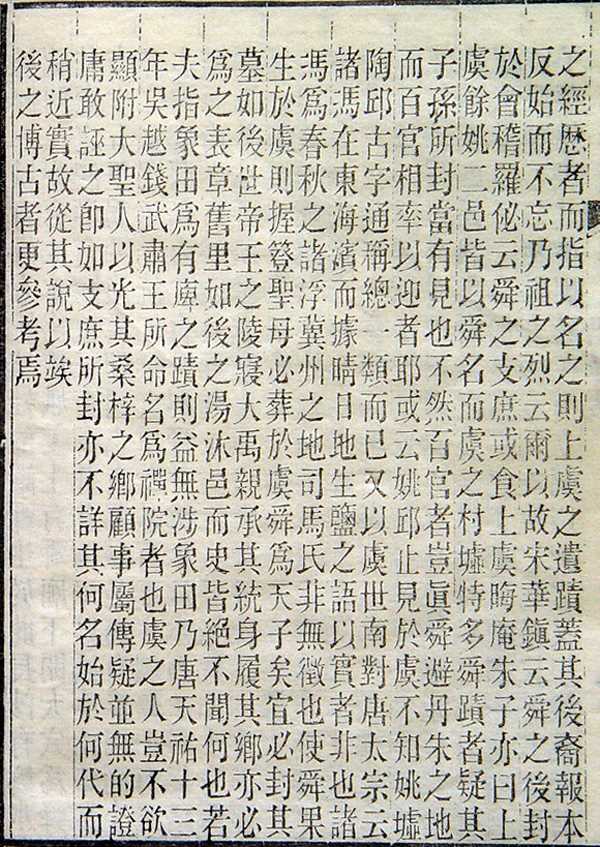 之經歷者而指以名之則上虞之遺蹟蓋其後裔報本
反始而不忘乃祖之烈云爾以故宋華鎮云舜之後封
於會稽羅佖云舜之支庶或食上虞晦庵朱子亦曰上
虞餘姚二邑皆以舜名而虞之村墟特多舜蹟者疑其
子孫所封當有見也不然百官者豈眞舜避丹朱之地
而百官相率以迎者耶或云姚邱止見於虞不知姚墟
陶邱古字通稱總一類而已又以虞世南對唐太宗云
諸馮在東海濱而據晴日地生鹽之語以實者非也諸
馮爲春秋之諸浮冀州之地司馬氏非無徵也使舜果
生於虞則握簦聖母必葬於虞舜爲天子矣宜必封其
墓如後世帝王之陵寢大禹親承其統身履其鄉亦必
爲之表章舊里如後之湯沐邑而史皆絕不聞何也若
夫指象田爲有庳之蹟則益無涉象田乃唐天祐十三
年吳越錢武肅王所命名爲禪院者也虞之人豈不欲
顯附大聖人以光其桑梓之鄉顧事屬傳疑並無的證
庸敢誣之卽如支庶所封亦不詳其何名始於何代而
稍近實故從其說以竢
後之博古者更參考焉